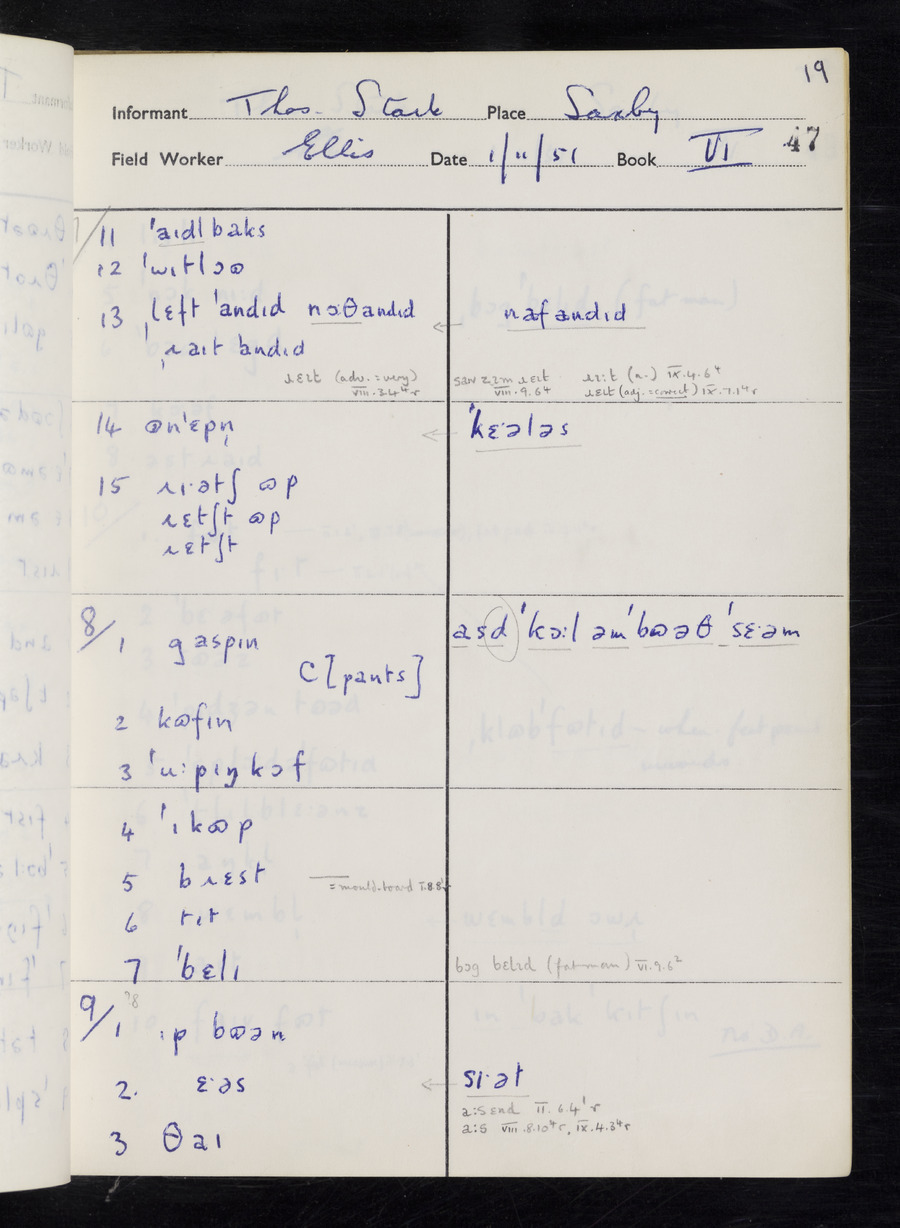 19
Informant Thos. Stark Place Saxby
Field Worker Ellis Date 1/11/51 Book VI 47
7/11 ˈaɪdl baks
12 ˈwɪtlɔʊ
13 ˌlɛft ˈandɪd nɔθandɪd ← nafandɪd
ˌɹaɪt ˈandɪd
ɹɛɪt (adv. = very) VIII.3.4⁴r
saw zəm ɹɛɪt VIII.9.6⁴
ɹɪːt (n.) IX.4.6⁴
ɹɛɪt (adj. = correct) IX.7.1⁴r
14 ʊnˈɛpn̩ ← ˈkɛˑələs
15 ɹɪˑətʃ ʊp
ɹɛtʃt ʊp
ɹɛtʃt
8/1 gaspɪn
asd ˈkɔːl əm ˈbʊəθ ˈsɛˑəm
C [pants]
2 kɒfɪn
3 ˈuːpɪŋkɔf
4 ˈɪkʊp
5 bɹɛst = mould-board I.8.8
6 tɪt
7 ˈbɛlɪ
bɔg bɛlɪd (fat man) VI.9.6²
9/1 ɪp bʊən
2. ɛˑəs ← sɪˑət
aːs ɛnd II.6.4¹r
aːs VIII.8.10⁴r, IX.4.3⁴r
3 θaɪ